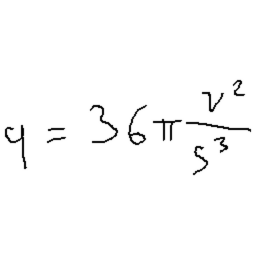 q = 36π v²/s³